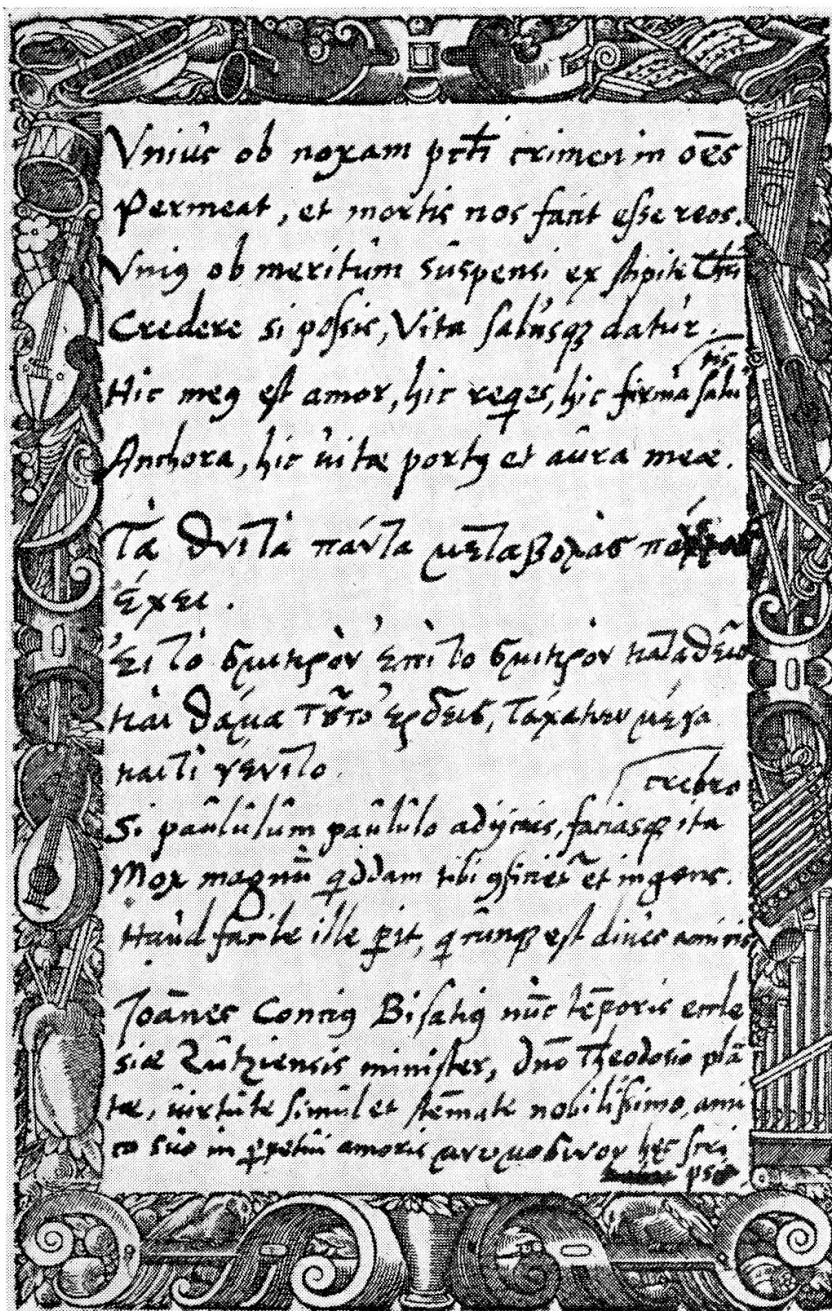 Vniûs ob noxam pcti crimen in oēs
Permeat, et mortis nos facit esse reos.
Vniꝰ ob meritûm sûspensi ex stipite Chri
Credere si possis, Vita salûsqꝫ datûr.
Hic meꝰ est amor, hic reqes, hic firma salu tis
Anchora, hic ûitæ portꝰ et aûra meæ.
Τὰ θνιτὰ πάντα μεταβολὰς
ἔχει.
Ἐι τὸ σμικρὸν ἐπὶ το σμικρὸν καταθεῖο
και θάμα τȣ͂το ἐρδεις, τάχακεν μέγα
και τι γένιτο.
Si paûlûlûm paûlûlo adijcias, faciasqꝫ ita crebro
Mox magnū qddam tibi ꝯficiet et ingens.
Haûd facile ille ꝑit, qcunqꝫ est diues amicis
Joānes Contiꝰ Bisatiꝰ nūc tēporis eccle
siæ Zûtziensis minister, dno Theodosio plā
tæ, ûirtûte simûl et stēmate nobilissimo, ami
co sûo in ꝑpetûi amoris hęc scri
psit.